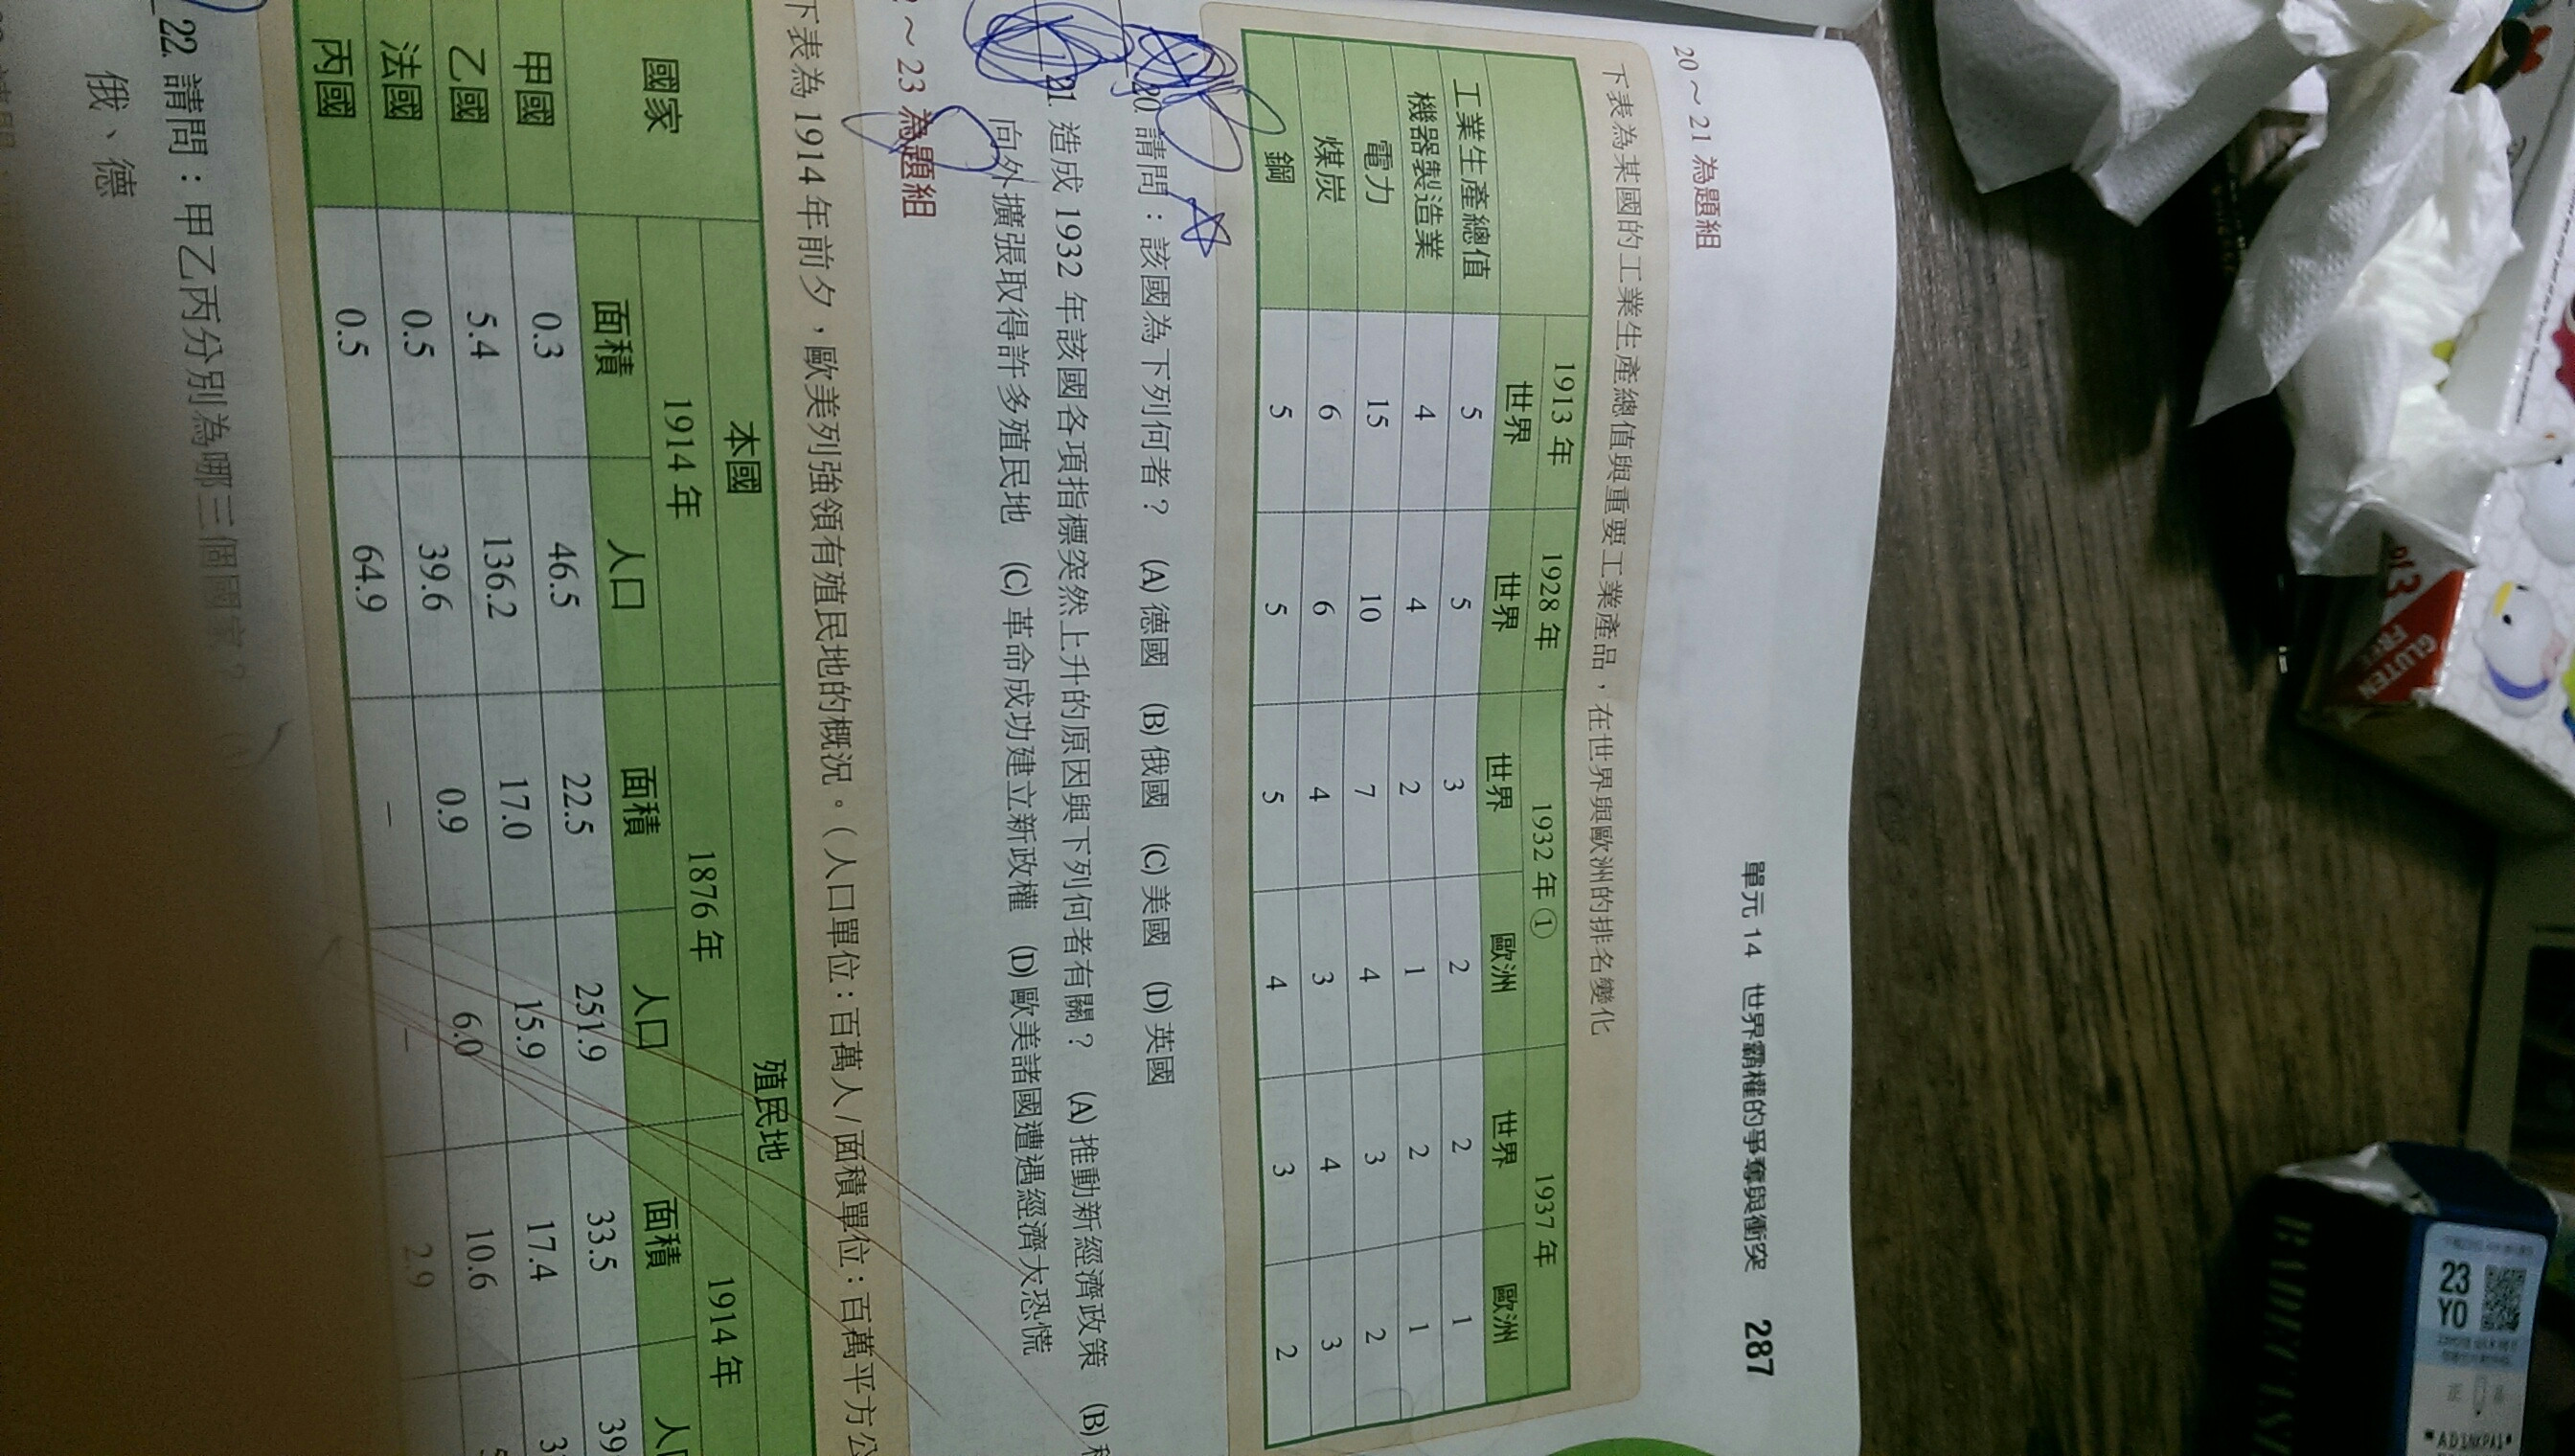 單元 14 世界霸權的爭奪與衝突 287
20～21 為題組
下表為某國的工業生產總值與重要工業產品，在世界與歐洲的排名變化
1913 年 1928 年 1932 年① 1937 年
世界 世界 世界 歐洲 世界 歐洲
工業生產總值 5 5 3 2 2 1
機器製造業 4 4 2 1 2 1
電力 15 10 7 4 3 2
煤炭 6 6 4 3 4 3
鋼 5 5 5 4 3 2
20. 請問：該國為下列何者？ (A) 德國 (B) 俄國 (C) 美國 (D) 英國
21. 造成 1932 年該國各項指標突然上升的原因與下列何者有關？ (A) 推動新經濟政策 (B)
向外擴張取得許多殖民地 (C) 革命成功建立新政權 (D) 歐美諸國遭遇經濟大恐慌
～23 為題組
下表為 1914 年前夕，歐美列強領有殖民地的概況。（人口單位：百萬人 / 面積單位：百萬平方公
國家 本國 殖民地
1914 年 1876 年 1914 年
面積 人口 面積 人口 面積 人口
甲國 0.3 46.5 22.5 251.9 33.5 39
乙國 5.4 136.2 17.0 15.9 17.4 3
法國 0.5 39.6 0.9 6.0 10.6 5
丙國 0.5 64.9 – – 2.9
22. 請問：甲乙丙分別為哪三個國家？
俄、德
GLUTEN
FREE
23
YO